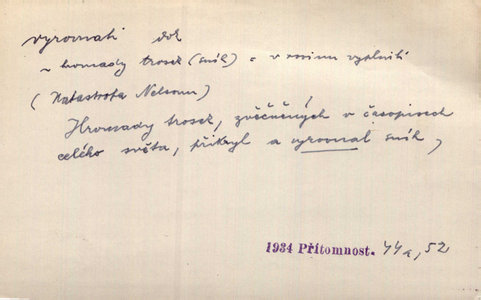 vyrovnati dok
~ hromady trosek (sníh) = v rovinu vyplniti
(Katastrofa Nelsonu)
Hromady trosek, zvěčněných v časopisech
celého světa, přikryl a vyrovnal sníh,
1934 Přítomnost. 44a, 52